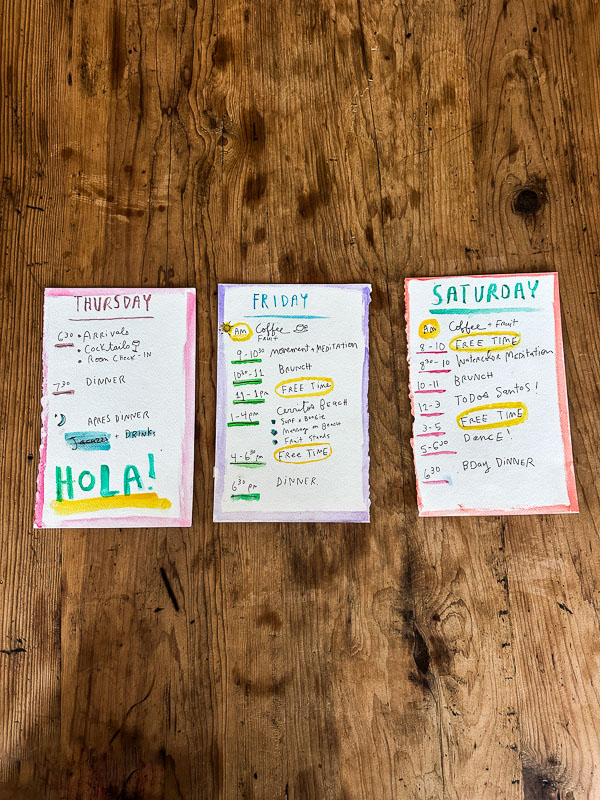 THURSDAY
6 30 • Arrivals
• Cocktails
• Room Check-IN
7 30 DINNER
APRES DINNER
Jacuzzi + DRINKS
HOLA!
FRIDAY
AM Coffee
Fruit
9 - 10 30 Movement + MEDITATION
10 30 - 11 BRUNCH
11 - 1pm FREE Time
1 - 4pm Cerritos BEACH
• Surf + Boogie
• Massage on Beach
• Fruit Stands
4 - 6 30 pm Free TIME
6 30 pm DINNER.
SATURDAY
AM Coffee + Fruit
8 - 10 FREE TIME
8 30 - 10 Watercolor Meditation
10 - 11 BRUNCH
12 - 3 TODOS Santos!
3 - 5 FREE TIME
5 - 6 30 Dance!
6 30 BDay DINNER